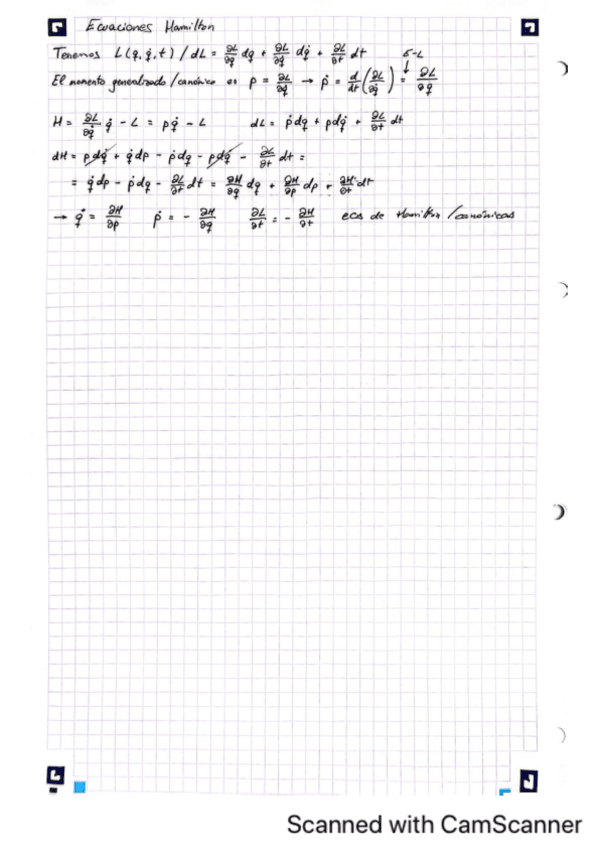 Ecuaciones Hamilton
Tenemos L(q, q̇, t) / dL = ∂L/∂q dq + ∂L/∂q̇ dq̇ + ∂L/∂t dt
E-L
El momento generalizado/canónico es p = ∂L/∂q̇ → ṗ = d/dt (∂L/∂q̇) = ∂L/∂q
H = ∂L/∂q̇ q̇ - L = pq̇ - L dL = ṗdq + pdq̇ + ∂L/∂t dt
dH = pdq̇ + q̇dp - ṗdq - pdq̇ - ∂L/∂t dt =
= q̇dp - ṗdq - ∂L/∂t dt = ∂H/∂q dq + ∂H/∂p dp + ∂H/∂t dt
→ q̇ = ∂H/∂p ṗ = - ∂H/∂q ∂L/∂t = - ∂H/∂t ecs de Hamilton /canónicas
Scanned with CamScanner